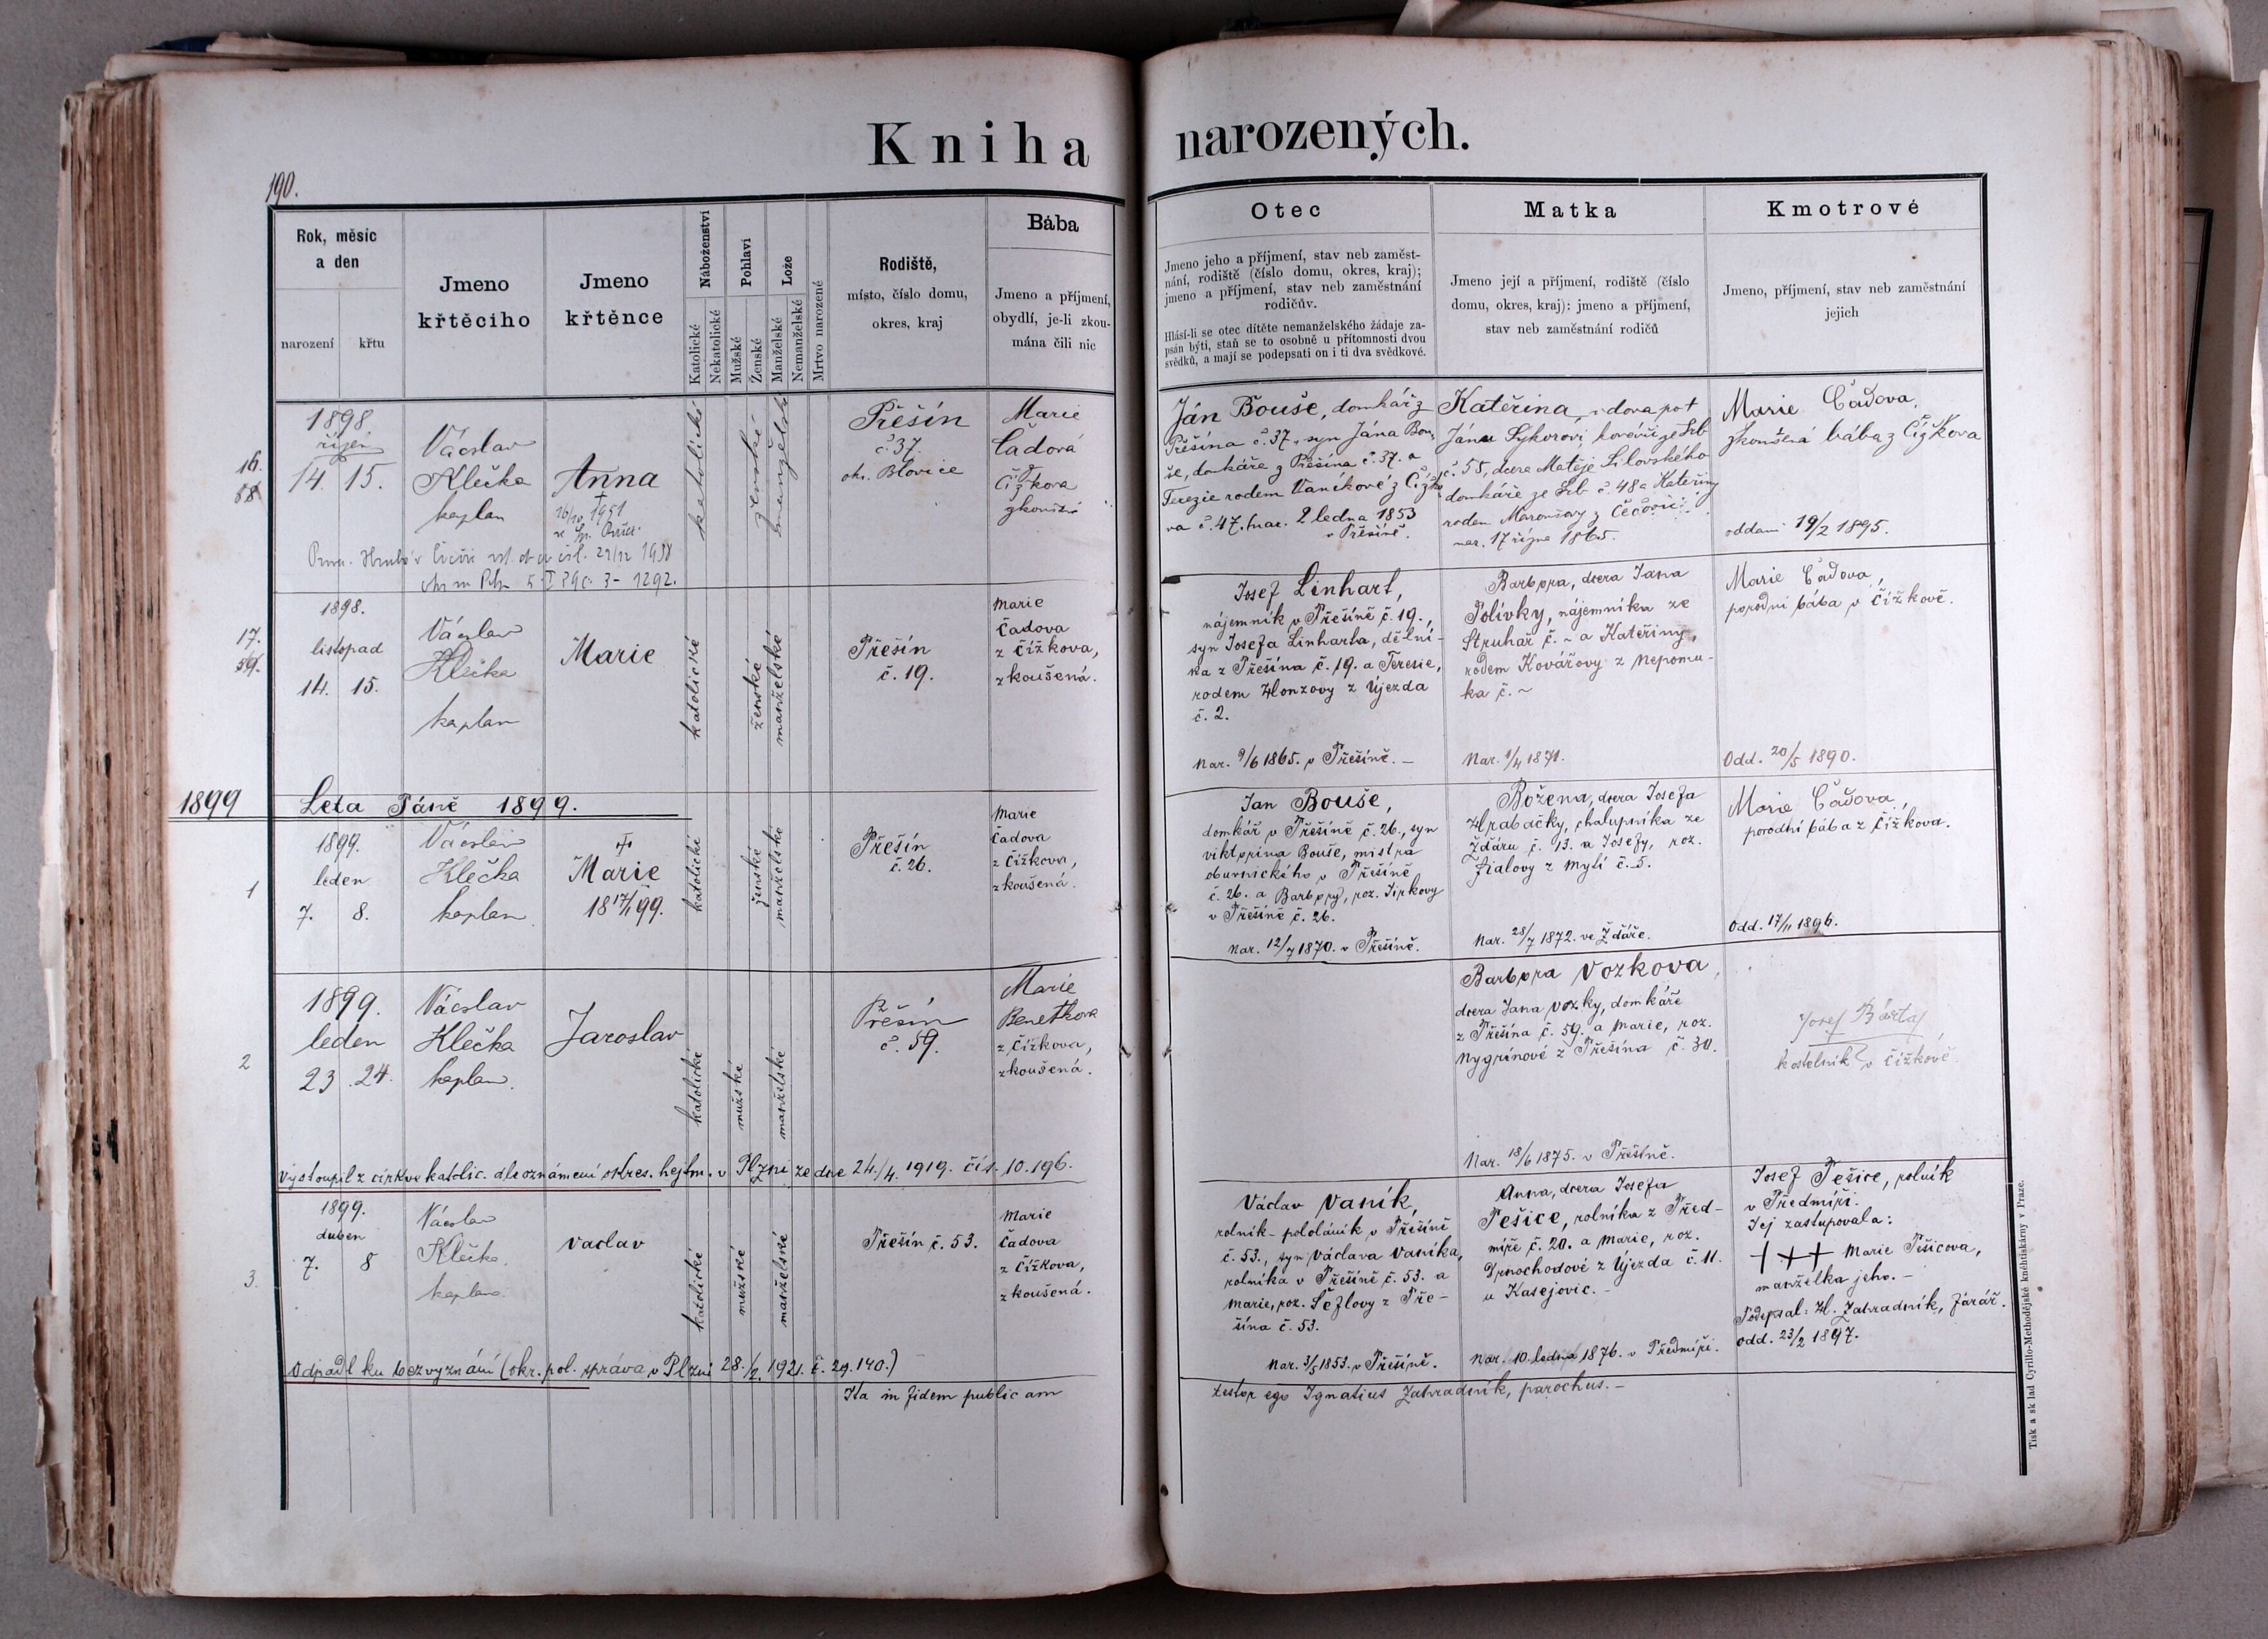 Kniha narozených.
190.
Rok, měsíc
a den
narození
křtu
Jmeno
křtěcího
Jmeno
křtěnce
Náboženství
Katolické
Nekatolické
Pohlaví
Mužské
Ženské
Lože
Manželské
Nemanželské
Mrtvo narozené
Rodiště,
místo, číslo domu,
okres, kraj
Bába
Jmeno a příjmení,
obydlí, je-li zkou-
mána čili nic
Otec
Jmeno jeho a příjmení, stav neb zaměst-
nání, rodiště (číslo domu, okres, kraj);
jmeno a příjmení, stav neb zaměstnání
rodičův.
Hlásí-li se otec dítěte nemanželského žádaje za-
psán býti, staň se to osobně u přítomnosti dvou
svědků, a mají se podepsati on i ti dva svědkové.
Matka
Jmeno její a příjmení, rodiště (číslo
domu, okres, kraj): jmeno a příjmení,
stav neb zaměstnání rodičů
Kmotrové
Jmeno, příjmení, stav neb zaměstnání
jejich
16.
58
1898
říjen
14. 15.
Václav
Klečka
kaplan
Anna
† 1951
katolické
ženské
manželské
Přešín
č 37.
okr. Blovice
Marie
Čadová
Čížkova
zkoušená
Ján Bouše, domkář z
Přešína č. 37, syn Jána Bou-
še, domkáře z Přešína č. 37. a
Terezie rodem Vaníkové z Čížko
va č. 47, nar. 2 ledna 1853
v Přešíně.
Kateřina, vdova po †
Jánu Sykorovi kováři ze Srb
č. 55, dcera Matěje Silovského
domkáře ze Srb č. 48 a Kateřiny
rodem Maroušovy z Čečovic
nar. 17 října 1865.
Marie Čadova,
zkoušená bába z Čížkova
oddani 19/2 1895.
29/12 1938
17.
59.
1898.
listopad
14. 15.
Václav
Klečka
kaplan
Marie
katolické
ženské
manželské
Přešín
č. 19.
Marie
Čadova
z Čížkova,
zkoušená.
Josef Linhart,
nájemník v Přešíně č. 19.,
syn Josefa Linharta, dělní-
ka z Přešína č. 19. a Teresie,
rodem Honzovy z Újezda
č. 2.
Nar. 9/6 1865. v Přešíně. –
Barbora, dcera Jana
Polívky, nájemníka ze
Struhař č. ~ a Kateřiny,
rodem Kovářovy z Nepomu-
ka č. ~
Nar. 1/4 1871.
Marie Čadova,
porodní bába v Čížkově.
Odd. 20/5 1890.
1899
Leta Páně 1899.
1
1899.
leden
7. 8.
Václav
Klečka
kaplan
†
Marie
18 17/II 99.
katolické
ženské
manželské
Přešín
č. 26.
Marie
Čadova
z Čížkova,
zkoušená.
Jan Bouše,
domkář v Přešíně č. 26., syn
Viktorina Bouše, mistra
obuvnického v Přešíně
č. 26. a Barbory, roz. Jirkovy
v Přešíně č. 26.
Nar. 12/7 1870. v Přešíně.
Božena, dcera Josefa
Hrabačky, chalupníka ze
Ždáru č. 13. a Josefy, roz.
Fialovy z Mylí č. 5.
Nar. 28/7 1872. ve Ždáře.
Marie Čadova,
porodní bába z Čížkova.
Odd. 17/11 1896.
2
1899.
leden
23. 24.
Václav
Klečka
kaplan.
Jaroslav
katolické
mužské
manželské
Přešín
č. 59.
Marie
Benetkova
z Čížkova,
zkoušená.
Barbora Vozkova,
dcera Jana Vozky, domkáře
z Přešína č. 59. a Marie, roz.
Nygrínové z Přešína č. 30.
Nar. 18/6 1875. v Přešíně.
Josef Bárta,
kostelník v Čížkově.
Vystoupil z církve katolic. dle oznámení okres. hejtm. v Plzni ze dne 24./4. 1919. čís. 10.196.
3.
1899.
duben
7. 8
Václav
Klečka
kaplan.
Vaclav
katolické
mužské
manželské
Přešín č. 53.
Marie
Čadova
z Čížkova,
zkoušená.
Václav Vaník,
rolník - pololáník v Přešíně
č. 53., syn Václava Vaníka,
rolníka v Přešíně č. 53. a
Marie, roz. Šéflovy z Pře-
šína č. 53.
Nar. 3/5 1853. v Přešíně.
Anna, dcera Josefa
Pešice, rolníka z Před-
míře č. 20. a Marie, roz.
Drnochodové z Újezda č. 11.
u Kasejovic. –
Nar. 10. ledna 1876. v Předmíři.
Josef Pešice, rolník
v Předmíři.
Jej zastupovala:
+++ Marie Pešicova,
manželka jeho. –
Podepsal: H. Zahradník, farář.
Odd. 23/2 1897.
Odpadl ku bezvyznání (okr. pol. správa v Plzni 28./2. 1921. č. 29.140.)
Ita in fidem publicam
testor ego Ignatius Zahradník, parochus. –
Tisk a sklad Cyrillo-Methodějské knihtiskárny v Praze.